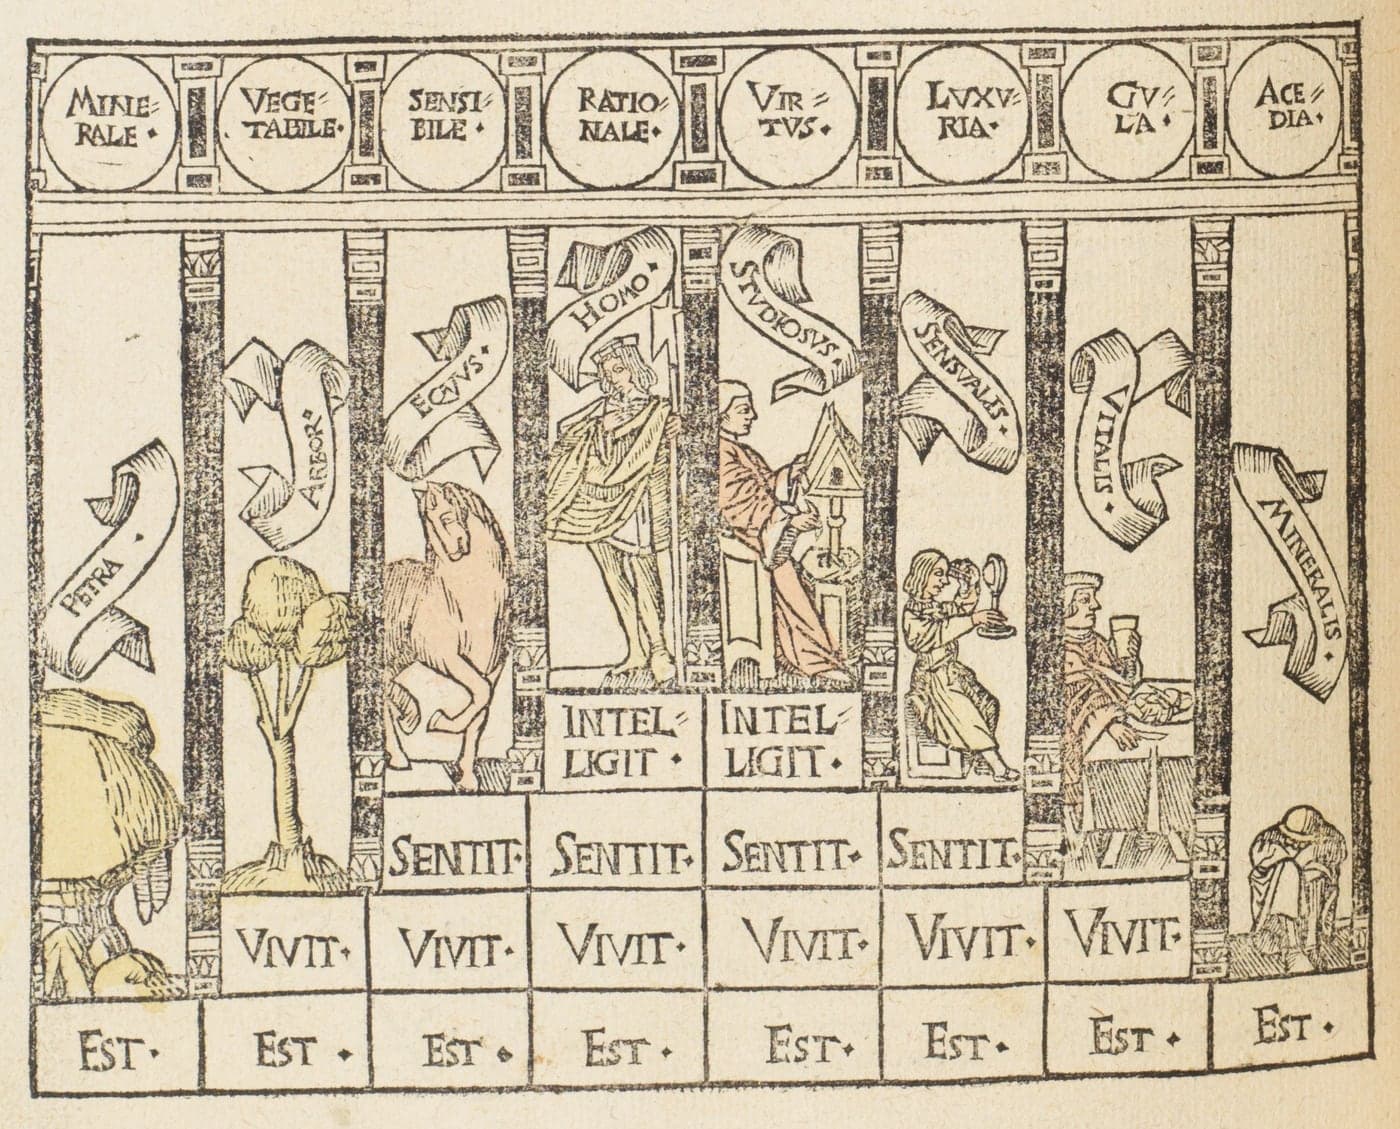 MINE=
RALE ·
VEGE=
TABILE·
SENSI=
BILE ·
RATIO=
NALE·
VIR=
TVS·
LVXV=
RIA·
GV=
LA·
ACE=
DIA·
PETRA ·
ARBOR·
EQVVS·
HOMO·
STVDIOSVS·
SENSVALIS·
VITALIS·
MINERALIS·
INTEL=
LIGIT ·
INTEL=
LIGIT ·
SENTIT·
SENTIT·
SENTIT·
SENTIT·
VIVIT·
VIVIT·
VIVIT·
VIVIT·
VIVIT·
VIVIT·
EST·
EST ·
EST ·
EST ·
EST·
EST·
EST ·
EST ·